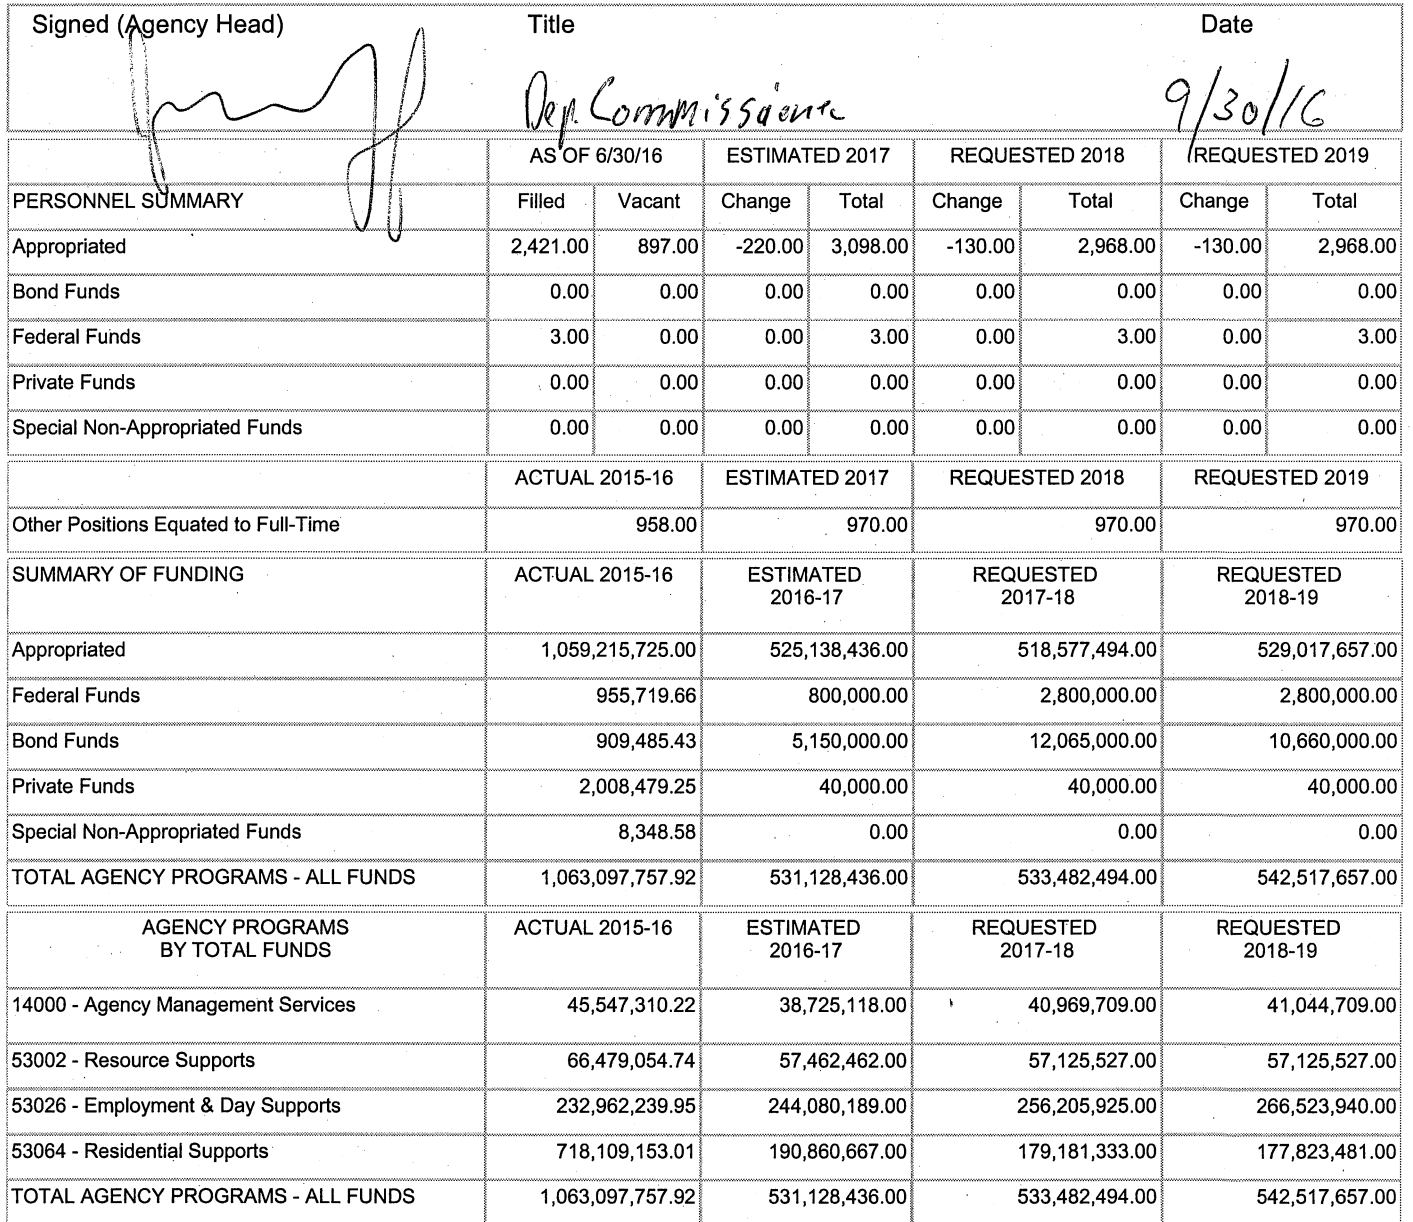 Signed (Agency Head) Title Date
Dep. Commissioner 9/30/16
AS OF 6/30/16 ESTIMATED 2017 REQUESTED 2018 REQUESTED 2019
PERSONNEL SUMMARY Filled Vacant Change Total Change Total Change Total
Appropriated 2,421.00 897.00 -220.00 3,098.00 -130.00 2,968.00 -130.00 2,968.00
Bond Funds 0.00 0.00 0.00 0.00 0.00 0.00 0.00 0.00
Federal Funds 3.00 0.00 0.00 3.00 0.00 3.00 0.00 3.00
Private Funds 0.00 0.00 0.00 0.00 0.00 0.00 0.00 0.00
Special Non-Appropriated Funds 0.00 0.00 0.00 0.00 0.00 0.00 0.00 0.00
ACTUAL 2015-16 ESTIMATED 2017 REQUESTED 2018 REQUESTED 2019
Other Positions Equated to Full-Time 958.00 970.00 970.00 970.00
SUMMARY OF FUNDING ACTUAL 2015-16 ESTIMATED REQUESTED REQUESTED
2016-17 2017-18 2018-19
Appropriated 1,059,215,725.00 525,138,436.00 518,577,494.00 529,017,657.00
Federal Funds 955,719.66 800,000.00 2,800,000.00 2,800,000.00
Bond Funds 909,485.43 5,150,000.00 12,065,000.00 10,660,000.00
Private Funds 2,008,479.25 40,000.00 40,000.00 40,000.00
Special Non-Appropriated Funds 8,348.58 0.00 0.00 0.00
TOTAL AGENCY PROGRAMS - ALL FUNDS 1,063,097,757.92 531,128,436.00 533,482,494.00 542,517,657.00
AGENCY PROGRAMS ACTUAL 2015-16 ESTIMATED REQUESTED REQUESTED
BY TOTAL FUNDS 2016-17 2017-18 2018-19
14000 - Agency Management Services 45,547,310.22 38,725,118.00 40,969,709.00 41,044,709.00
53002 - Resource Supports 66,479,054.74 57,462,462.00 57,125,527.00 57,125,527.00
53026 - Employment & Day Supports 232,962,239.95 244,080,189.00 256,205,925.00 266,523,940.00
53064 - Residential Supports 718,109,153.01 190,860,667.00 179,181,333.00 177,823,481.00
TOTAL AGENCY PROGRAMS - ALL FUNDS 1,063,097,757.92 531,128,436.00 533,482,494.00 542,517,657.00